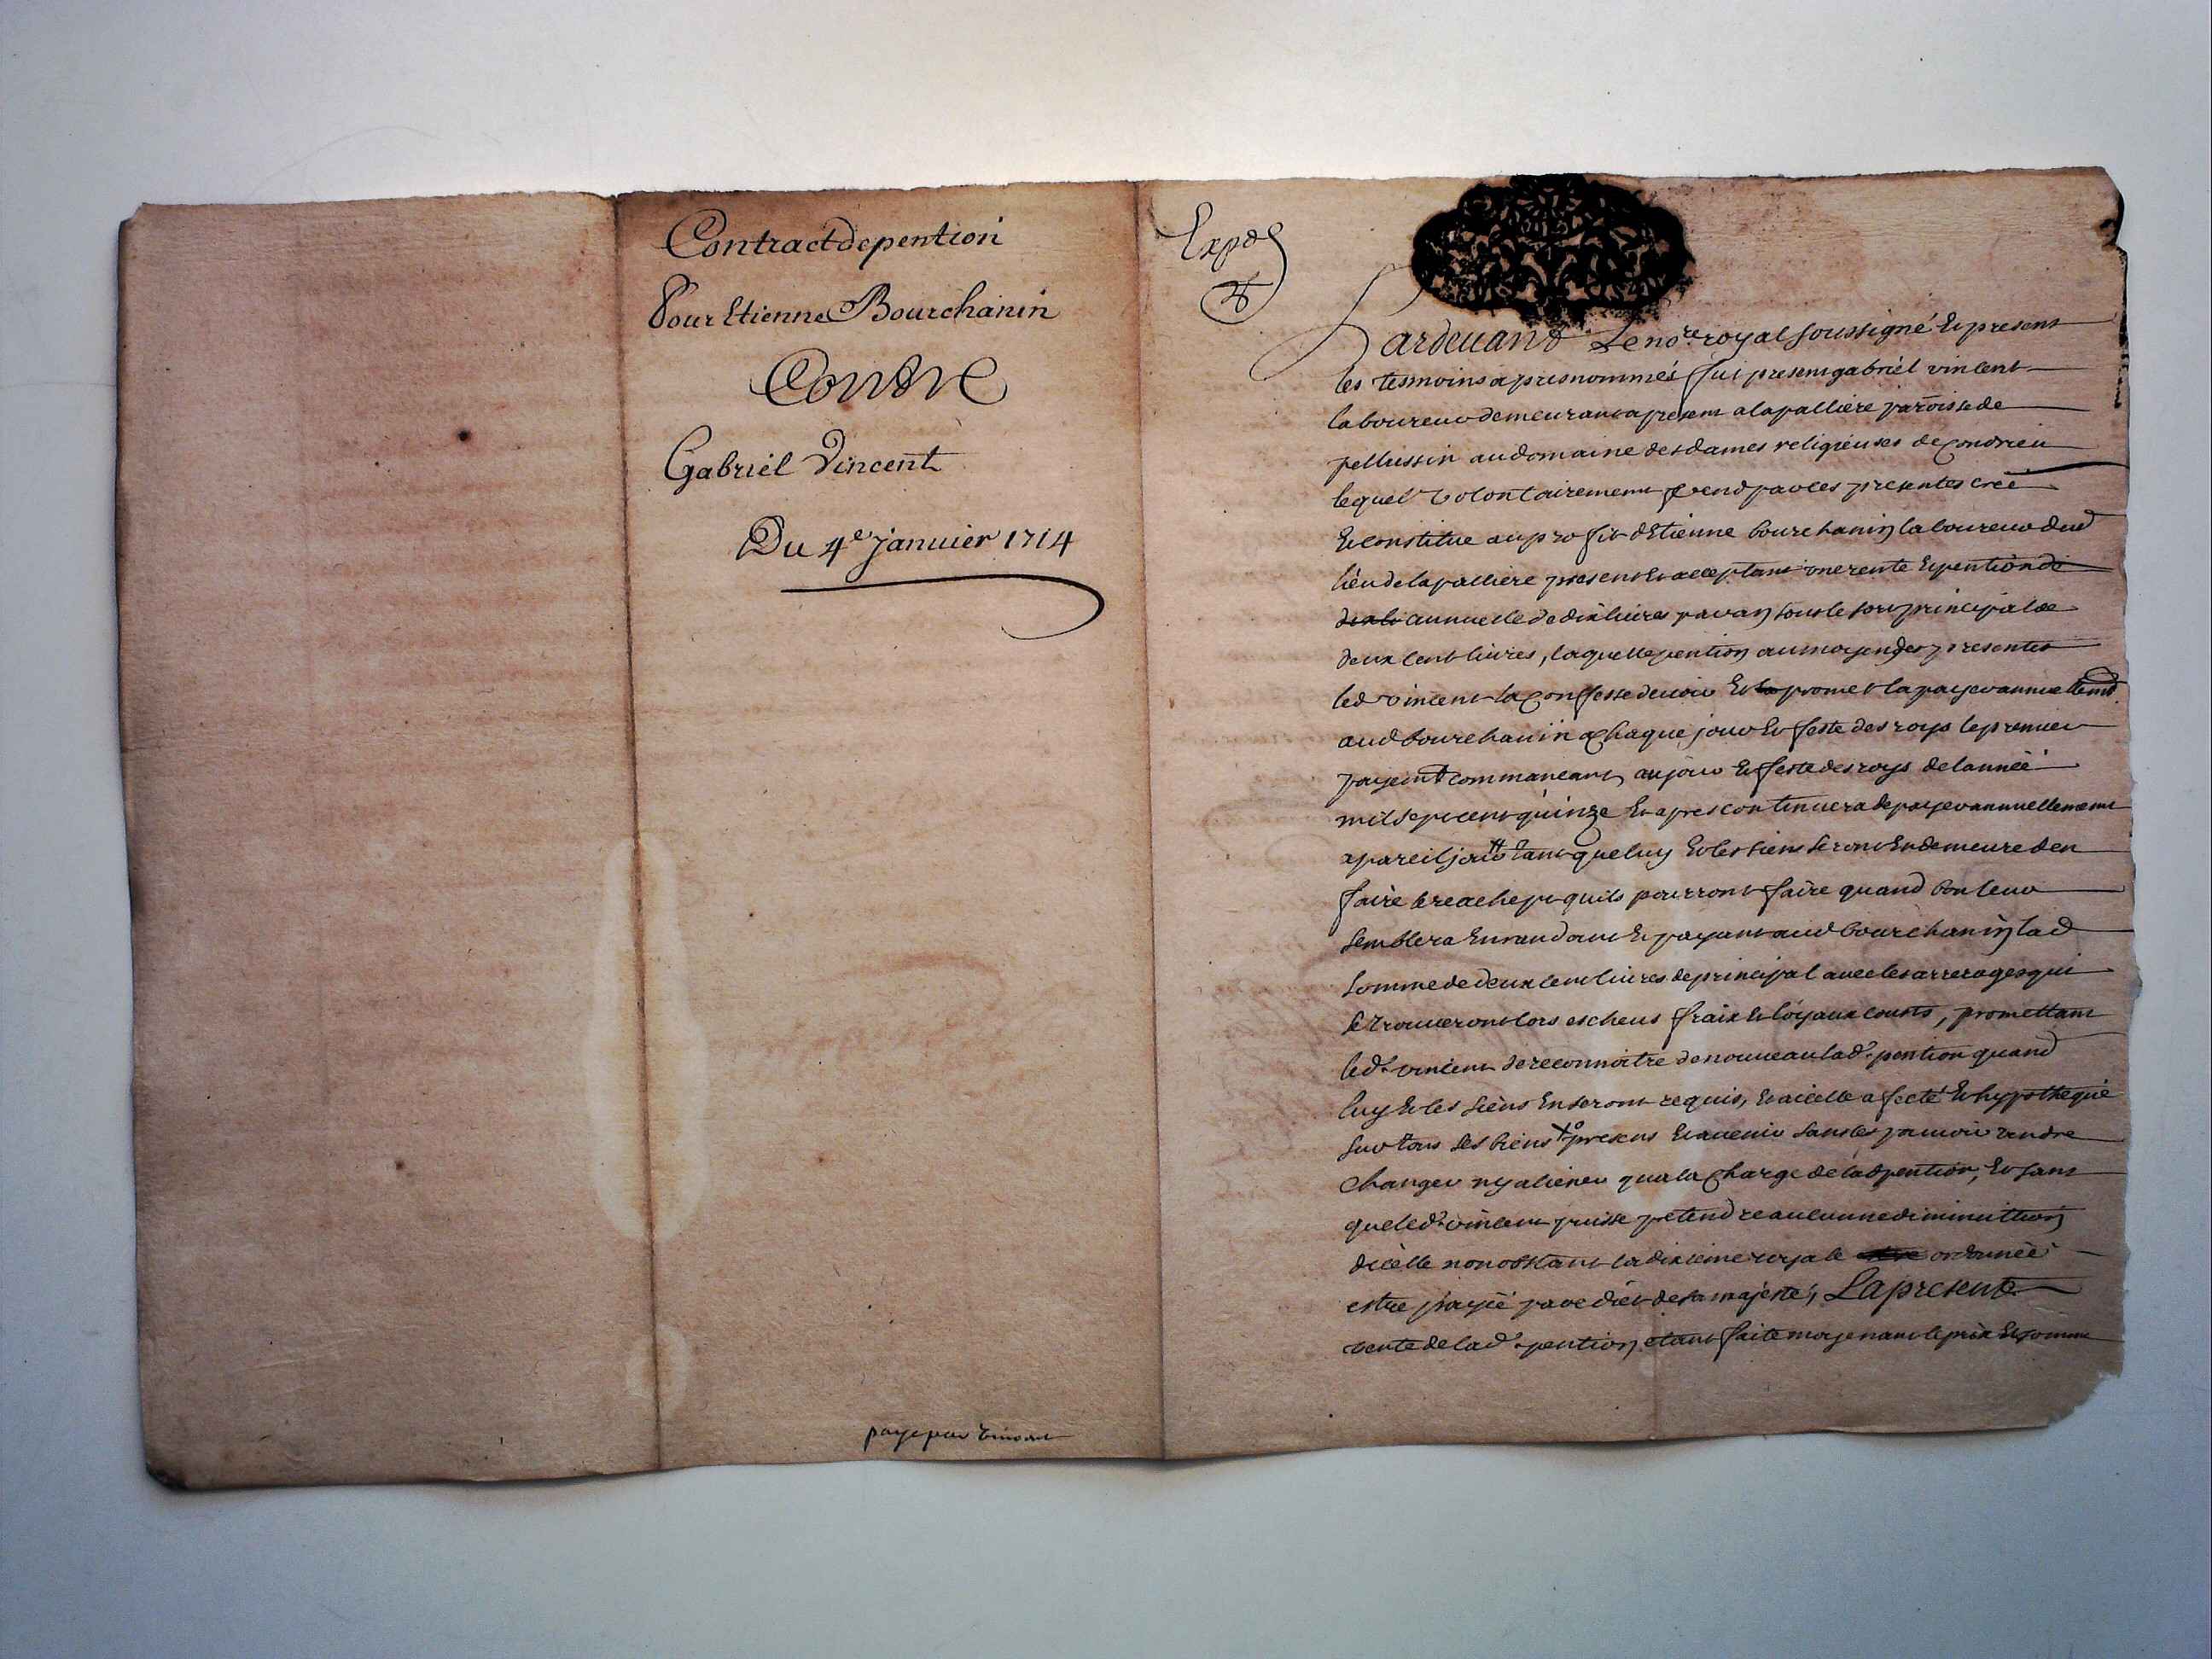 Contract de pention
Pour Etienne Bourchanin
Contre
Gabriel Vincent
Du 4e janvier 1714
paye par
Expd
Pardevand Le nore royal soussigné Et present
les tesmoins apres nommés fut present gabriél vincent
laboureur demeurant a present a lapalliere parroisse de
pellussin au domaine des dames religieuses de Condrieu
lequel volontairement vend par ces presentes creé
Et constitue au profit d'Etienne bourchanin laboureur dud
lieu de lapalliere present et acceptant une rente Et pention de
annuelle de dix livres par an sous le sort principal de
deux cent livres, laquelle pention au moyen des presentes
led vincent la Confesse devoir Et promet la payer annuellemt
aud bourchanin a Chaque jour Et feste des roys le premier
payemt commancant au jour Et feste des roys de lanneé
mil sept cent quinze Et apres continuera de payer annuellement
a pareil jour tant que luy Et les siens seront En demeure den
faire le reachept quils pourront faire quand bon leur
semblera En randant Et payant aud bourchanin lad
somme de deux cent livres de principal avec les arrerages qui
se trouveront lors escheus fraix Et loyaux cousts, promettant
led. vincent de reconnoitre de nouveau lad. pention quand
luy Et les siens En seront requis, Et a icelle afecté Et hypothequé
sur tous ses biens presens Et avenir sans les pouvoir vendre
Changer ny aliener qua la Charge de lad pention, Et sans
que led. vincent puisse pretendre aucunne diminuttion
dicelle nonobstant la dixieme royale ordonneé
estre payeé par edict de sa majesté, La presente
vente de lad. pention etant faite moyenant le prix Et somme